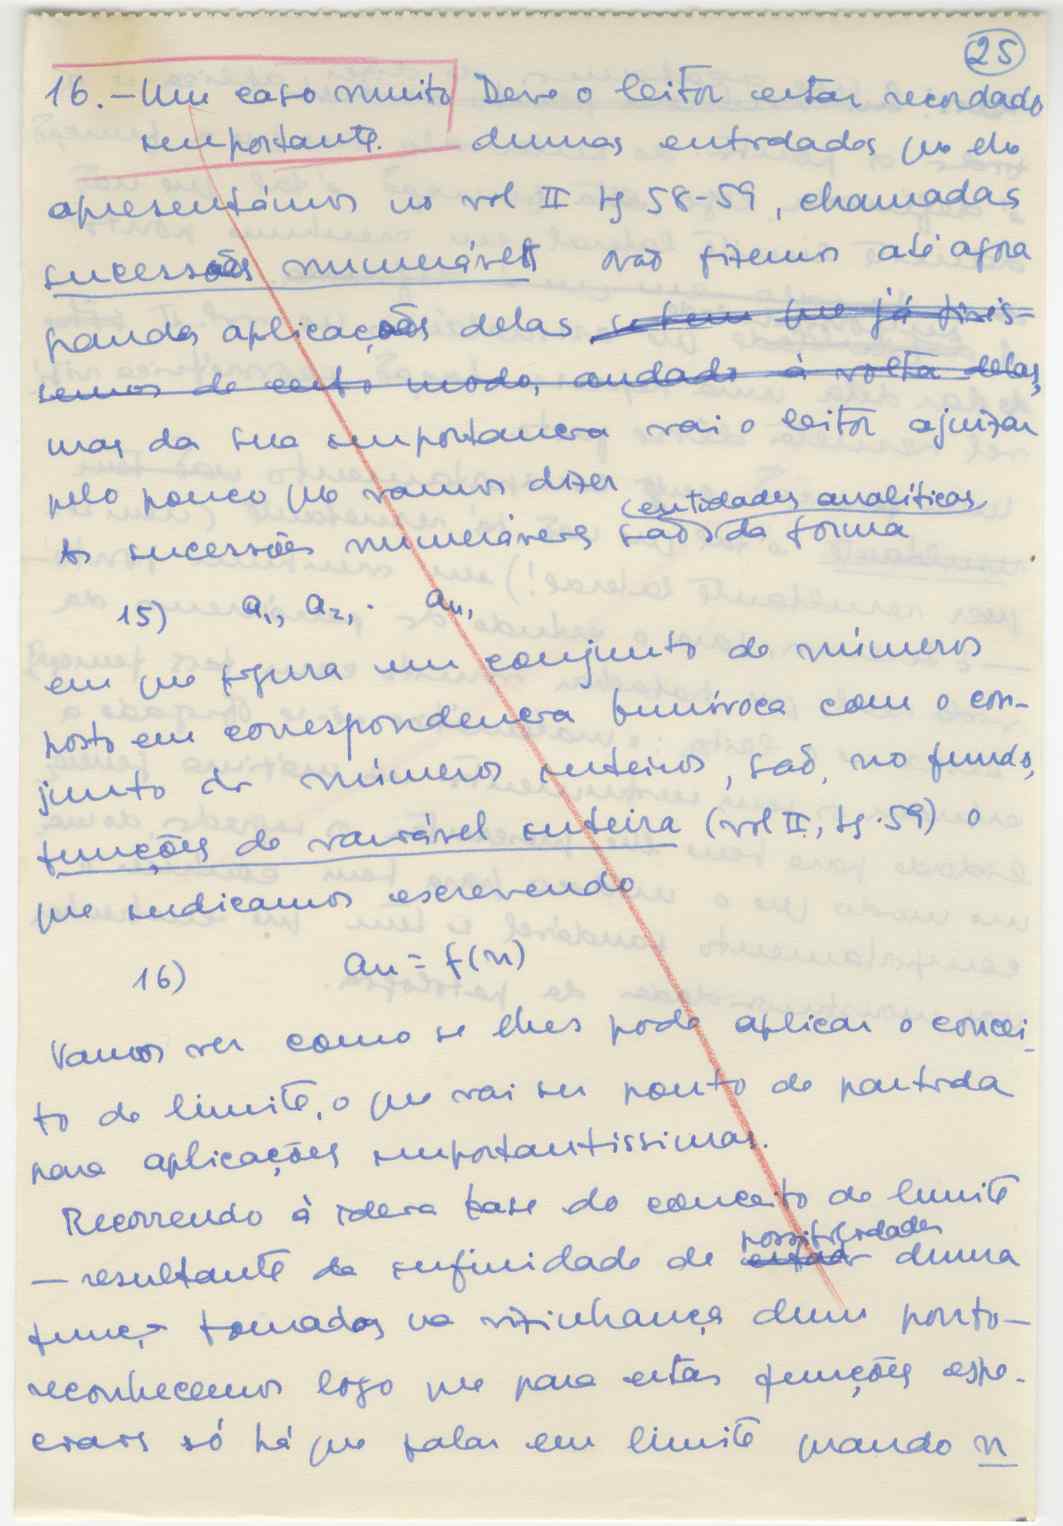 25
16. – Um caso muito Deve o leitor estar recordado
importante. dumas entidades que lhe
apresentámos no vol II pg 58-59, chamadas
sucessões numeráveis não fizemos até agora
grandes aplicações delas se bem que já tivés-
semos de certo modo, andado à volta delas,
mas da sua importancia vai o leitor ajuizar
pelo pouco que vamos dizer
(entidades analíticas
As sucessões numeráveis são) da forma
15) a₁, a₂, . aₙ,
em que figura um conjunto de números
posto em correspondencia biunívoca com o con-
junto dos números inteiros, são, no fundo,
funções de variável inteira (vol II, pg. 59) o
que indicamos escrevendo
16) aₙ = f(n)
Vamos ver como se lhes pode aplicar o concei-
to de limite, o que vai ser ponto de partida
para aplicações importantissimas.
Recorrendo à ideia base do conceito de limite
possibilidades
— resultante da infinidade de duma
funç. tomadas na vizinhança dum ponto —
reconhecemos logo que para estas funções espe-
ciais só há que falar em limite quando n